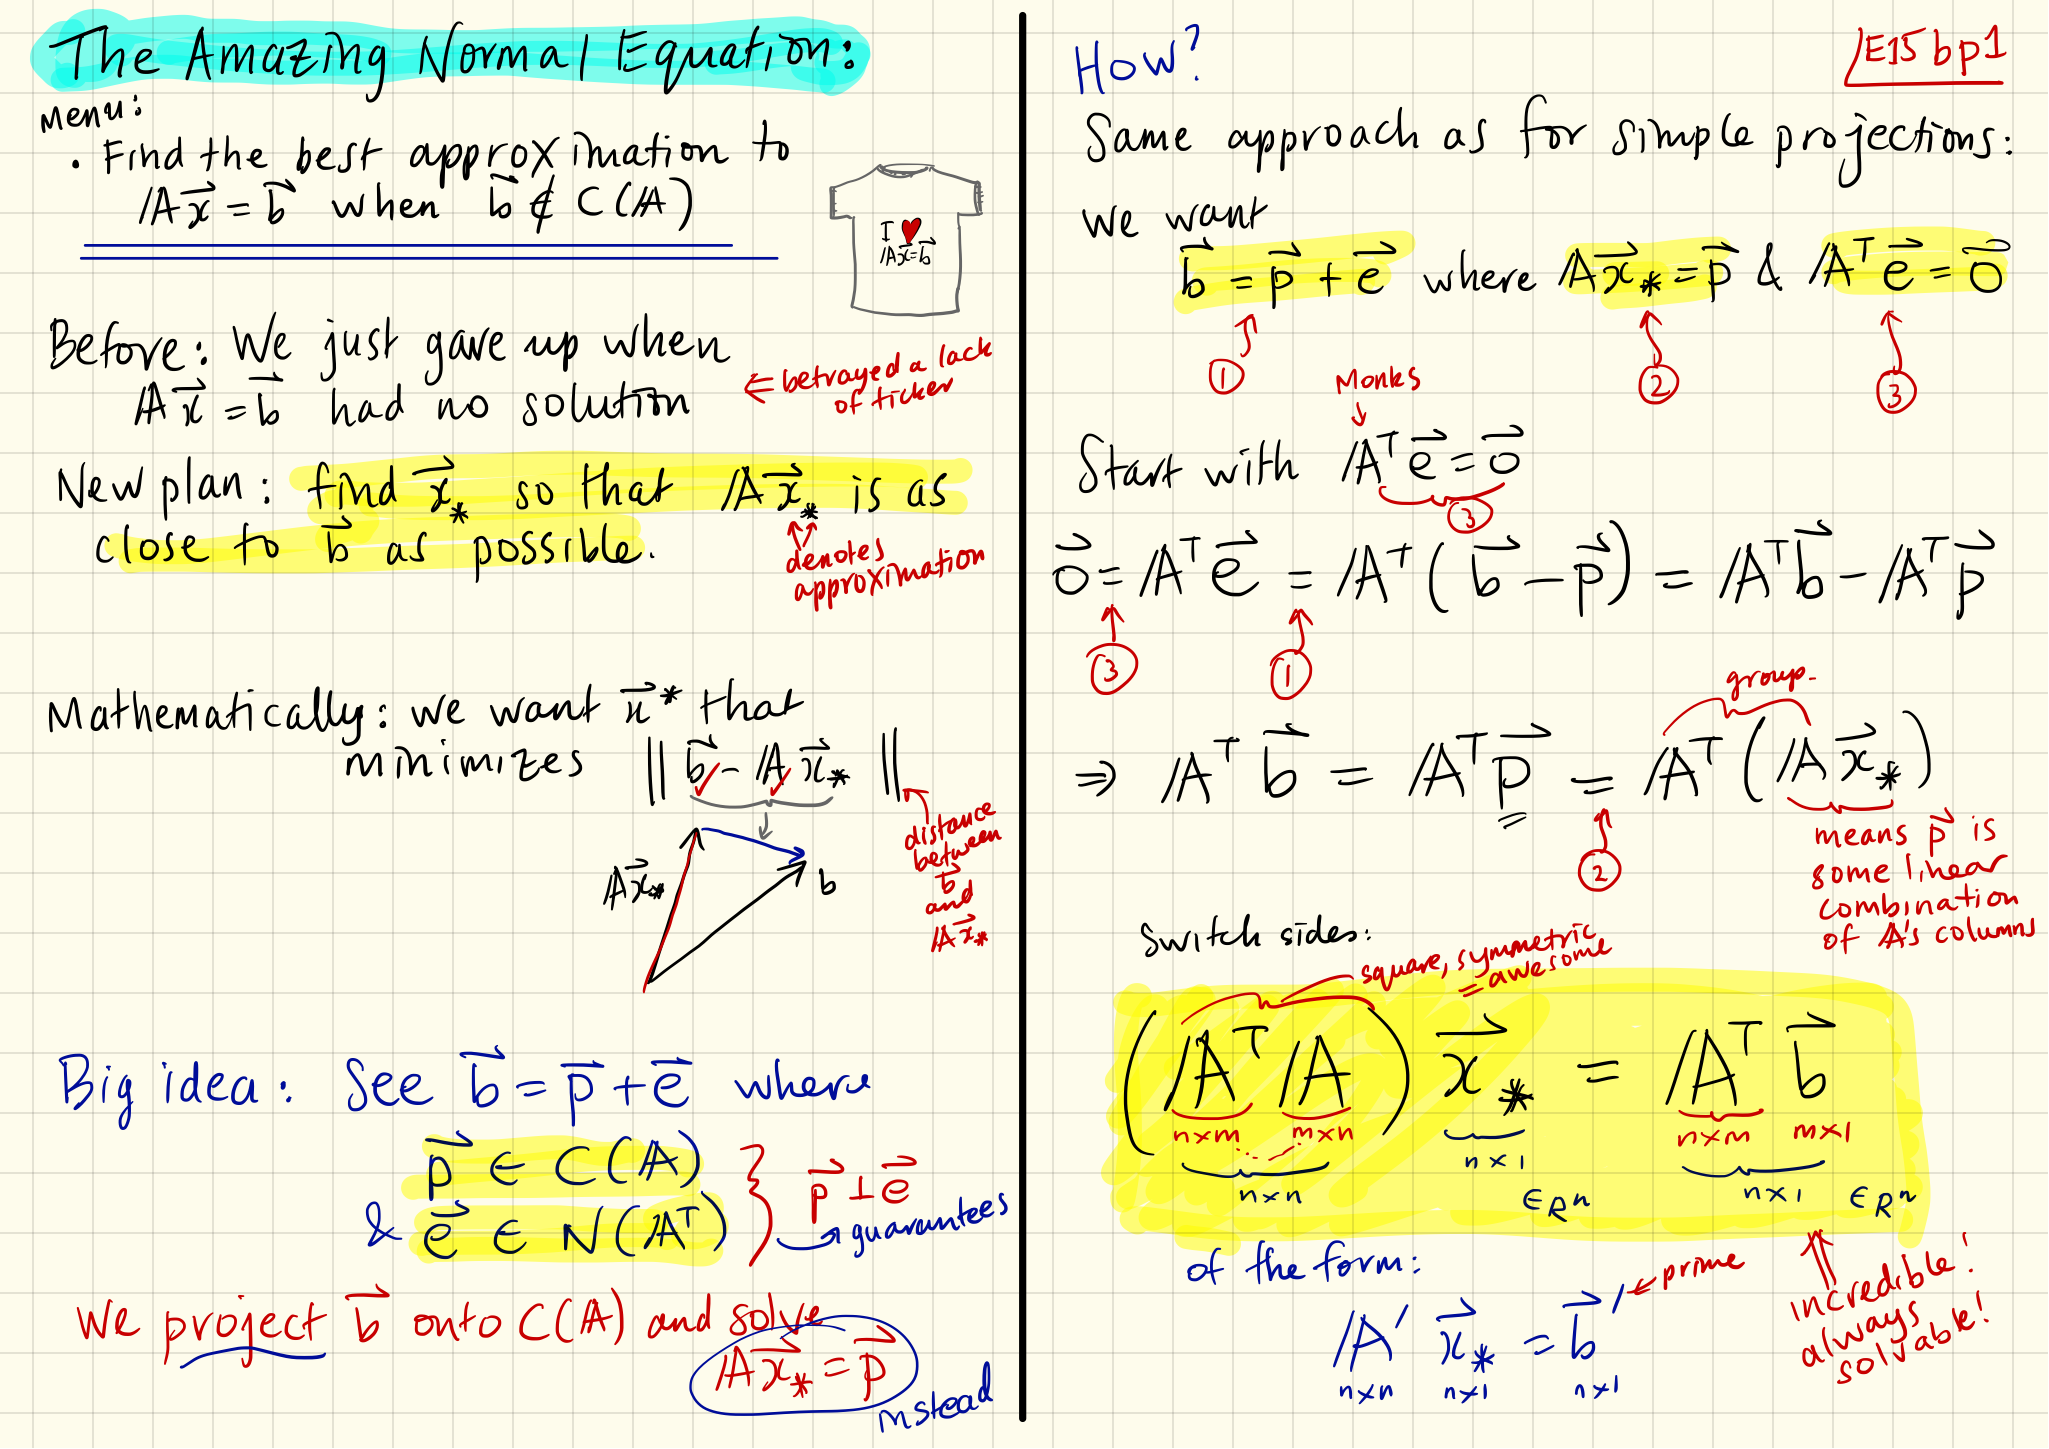 The Amazing Normal Equation:
Menu:
• Find the best approximation to
𝔸x⃗ = b⃗ when b⃗ ∉ C(𝔸)
I ♥
𝔸x⃗=b⃗
Before: We just gave up when
𝔸x⃗ = b⃗ had no solution
⇐ betrayed a lack
of ticker
New plan: find x⃗* so that 𝔸x⃗* is as
close to b⃗ as possible.
denotes
approximation
Mathematically: we want x⃗* that
minimizes || b⃗ - 𝔸x⃗* ||
distance
between
b⃗
and
𝔸x⃗*
𝔸x⃗*
b
Big idea: See b⃗ = p⃗ + e⃗ where
p⃗ ∈ C(𝔸)
& e⃗ ∈ N(𝔸ᵀ)
} p⃗ ⊥ e⃗
guarantees
We project b⃗ onto C(𝔸) and solve
𝔸x⃗* = p⃗
instead
How?
/E15bp1
Same approach as for simple projections:
we want
b⃗ = p⃗ + e⃗ where 𝔸x⃗* = p⃗ & 𝔸ᵀe⃗ = 0⃗
① ② ③
Monks
Start with 𝔸ᵀe⃗ = 0⃗
③
0⃗ = 𝔸ᵀe⃗ = 𝔸ᵀ(b⃗ - p⃗) = 𝔸ᵀb⃗ - 𝔸ᵀp⃗
③ ①
group.
⇒ 𝔸ᵀb⃗ = 𝔸ᵀp⃗ = 𝔸ᵀ(𝔸x⃗*)
②
means p⃗ is
some linear
combination
of 𝔸's columns
Switch sides:
square, symmetric
= awesome
(𝔸ᵀ𝔸) x⃗* = 𝔸ᵀ b⃗
n×m m×n n×1 n×m m×1
n×n ∈Rⁿ n×1 ∈Rⁿ
of the form:
← prime
𝔸′ x⃗* = b⃗′
n×n n×1 n×1
incredible!
always
solvable!